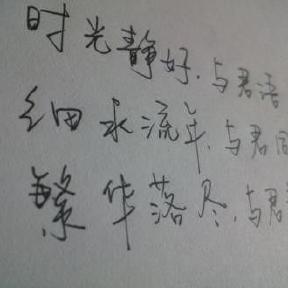 时光静好，与君语
细水流年，与君同
繁华落尽，与君